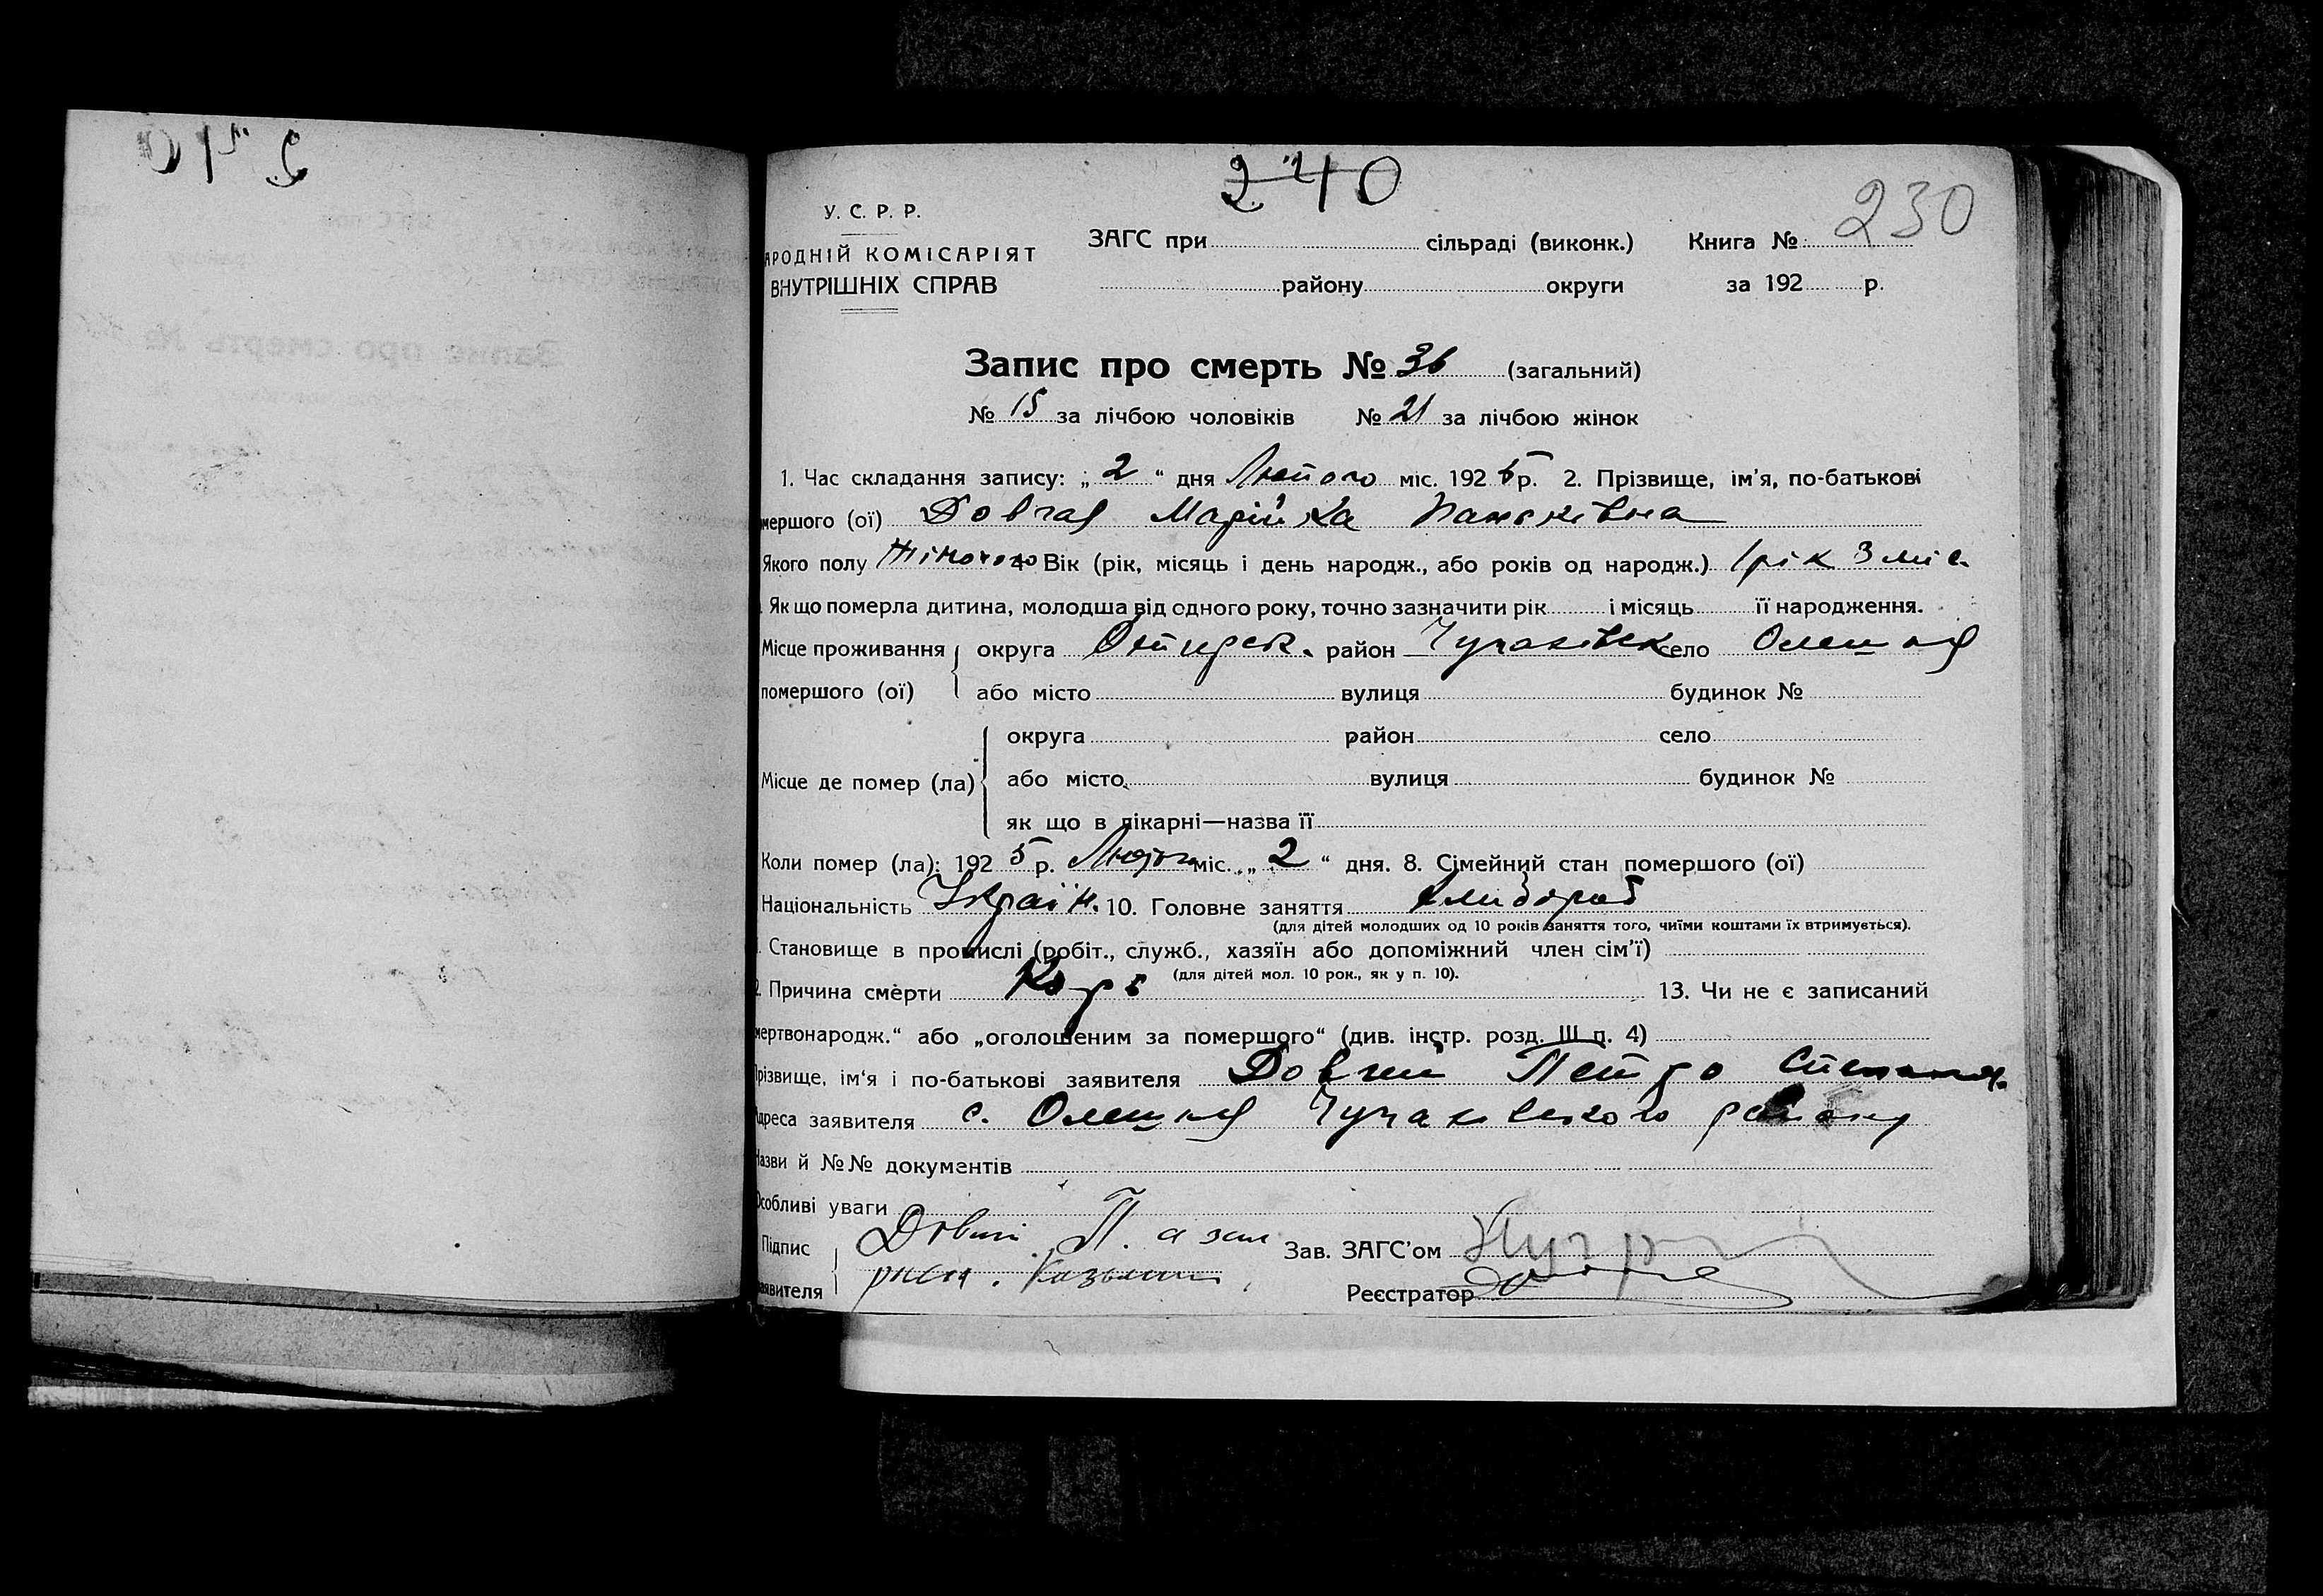 240
230
У. С. Р. Р.
АРОДНІЙ КОМІСАРІЯТ
ВНУТРІШНІХ СПРАВ
ЗАГС при сільраді (виконк.) Книга №
району округи за 192 р.
Запис про смерть № 36 (загальний)
№ 15 за лічбою чоловіків № 21 за лічбою жінок
1. Час складання запису: „ 2 “ дня Лютого міс. 192 5 р. 2. Прізвище, ім'я, по-батькові
мершого (ої) Довгая Марійка
Якого полу Жіночого 4. Вік (рік, місяць і день народж., або років од народж.) 1 рік 3 міс.
Як що померла дитина, молодша від одного року, точно зазначити рік і місяць її народження.
Місце проживання округа район село Олешня
помершого (ої) або місто вулиця будинок №
округа район село
Місце де помер (ла) або місто вулиця будинок №
як що в лікарні—назва її
Коли помер (ла): 192 5 р. Лютого міс. „ 2 “ дня. 8. Сімейний стан помершого (ої)
Національність Україн. 10. Головне заняття хлібороб
(для дітей молодших од 10 років заняття того, чиїми коштами їх втримується).
Становище в промислі (робіт., служб., хазяїн або допоміжний член сім'ї)
(для дітей мол. 10 рок., як у п. 10).
Причина смерти Корь 13. Чи не є записаний
мертвонародж.“ або „оголошеним за помершого“ (див. інстр. розд. III п. 4)
різвище, ім'я і по-батькові заявителя Довгий Петро Степанов.
дреса заявителя с. Олешня Чупахівского району
Назви й №№ документів
Особливі уваги
Підпис Довгий П. а за Зав. ЗАГС'ом
заявителя Реєстратор